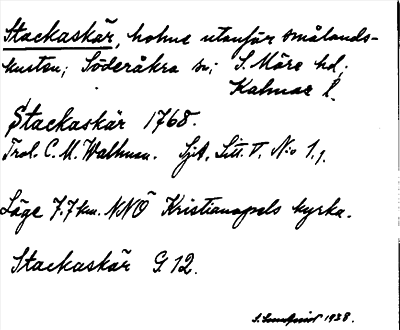 Stackaskär, holme utanför smålands-
kusten; Söderåkra sn; S. Möre hd;
Kalmar l.
Stackaskär 1768.
Trol. C. M. Wallman. SjA, Litt. V, No 1,1.
Läge 7.7 km. NNÖ Kristianopels kyrka.
Stackaskär G 12.
1938.